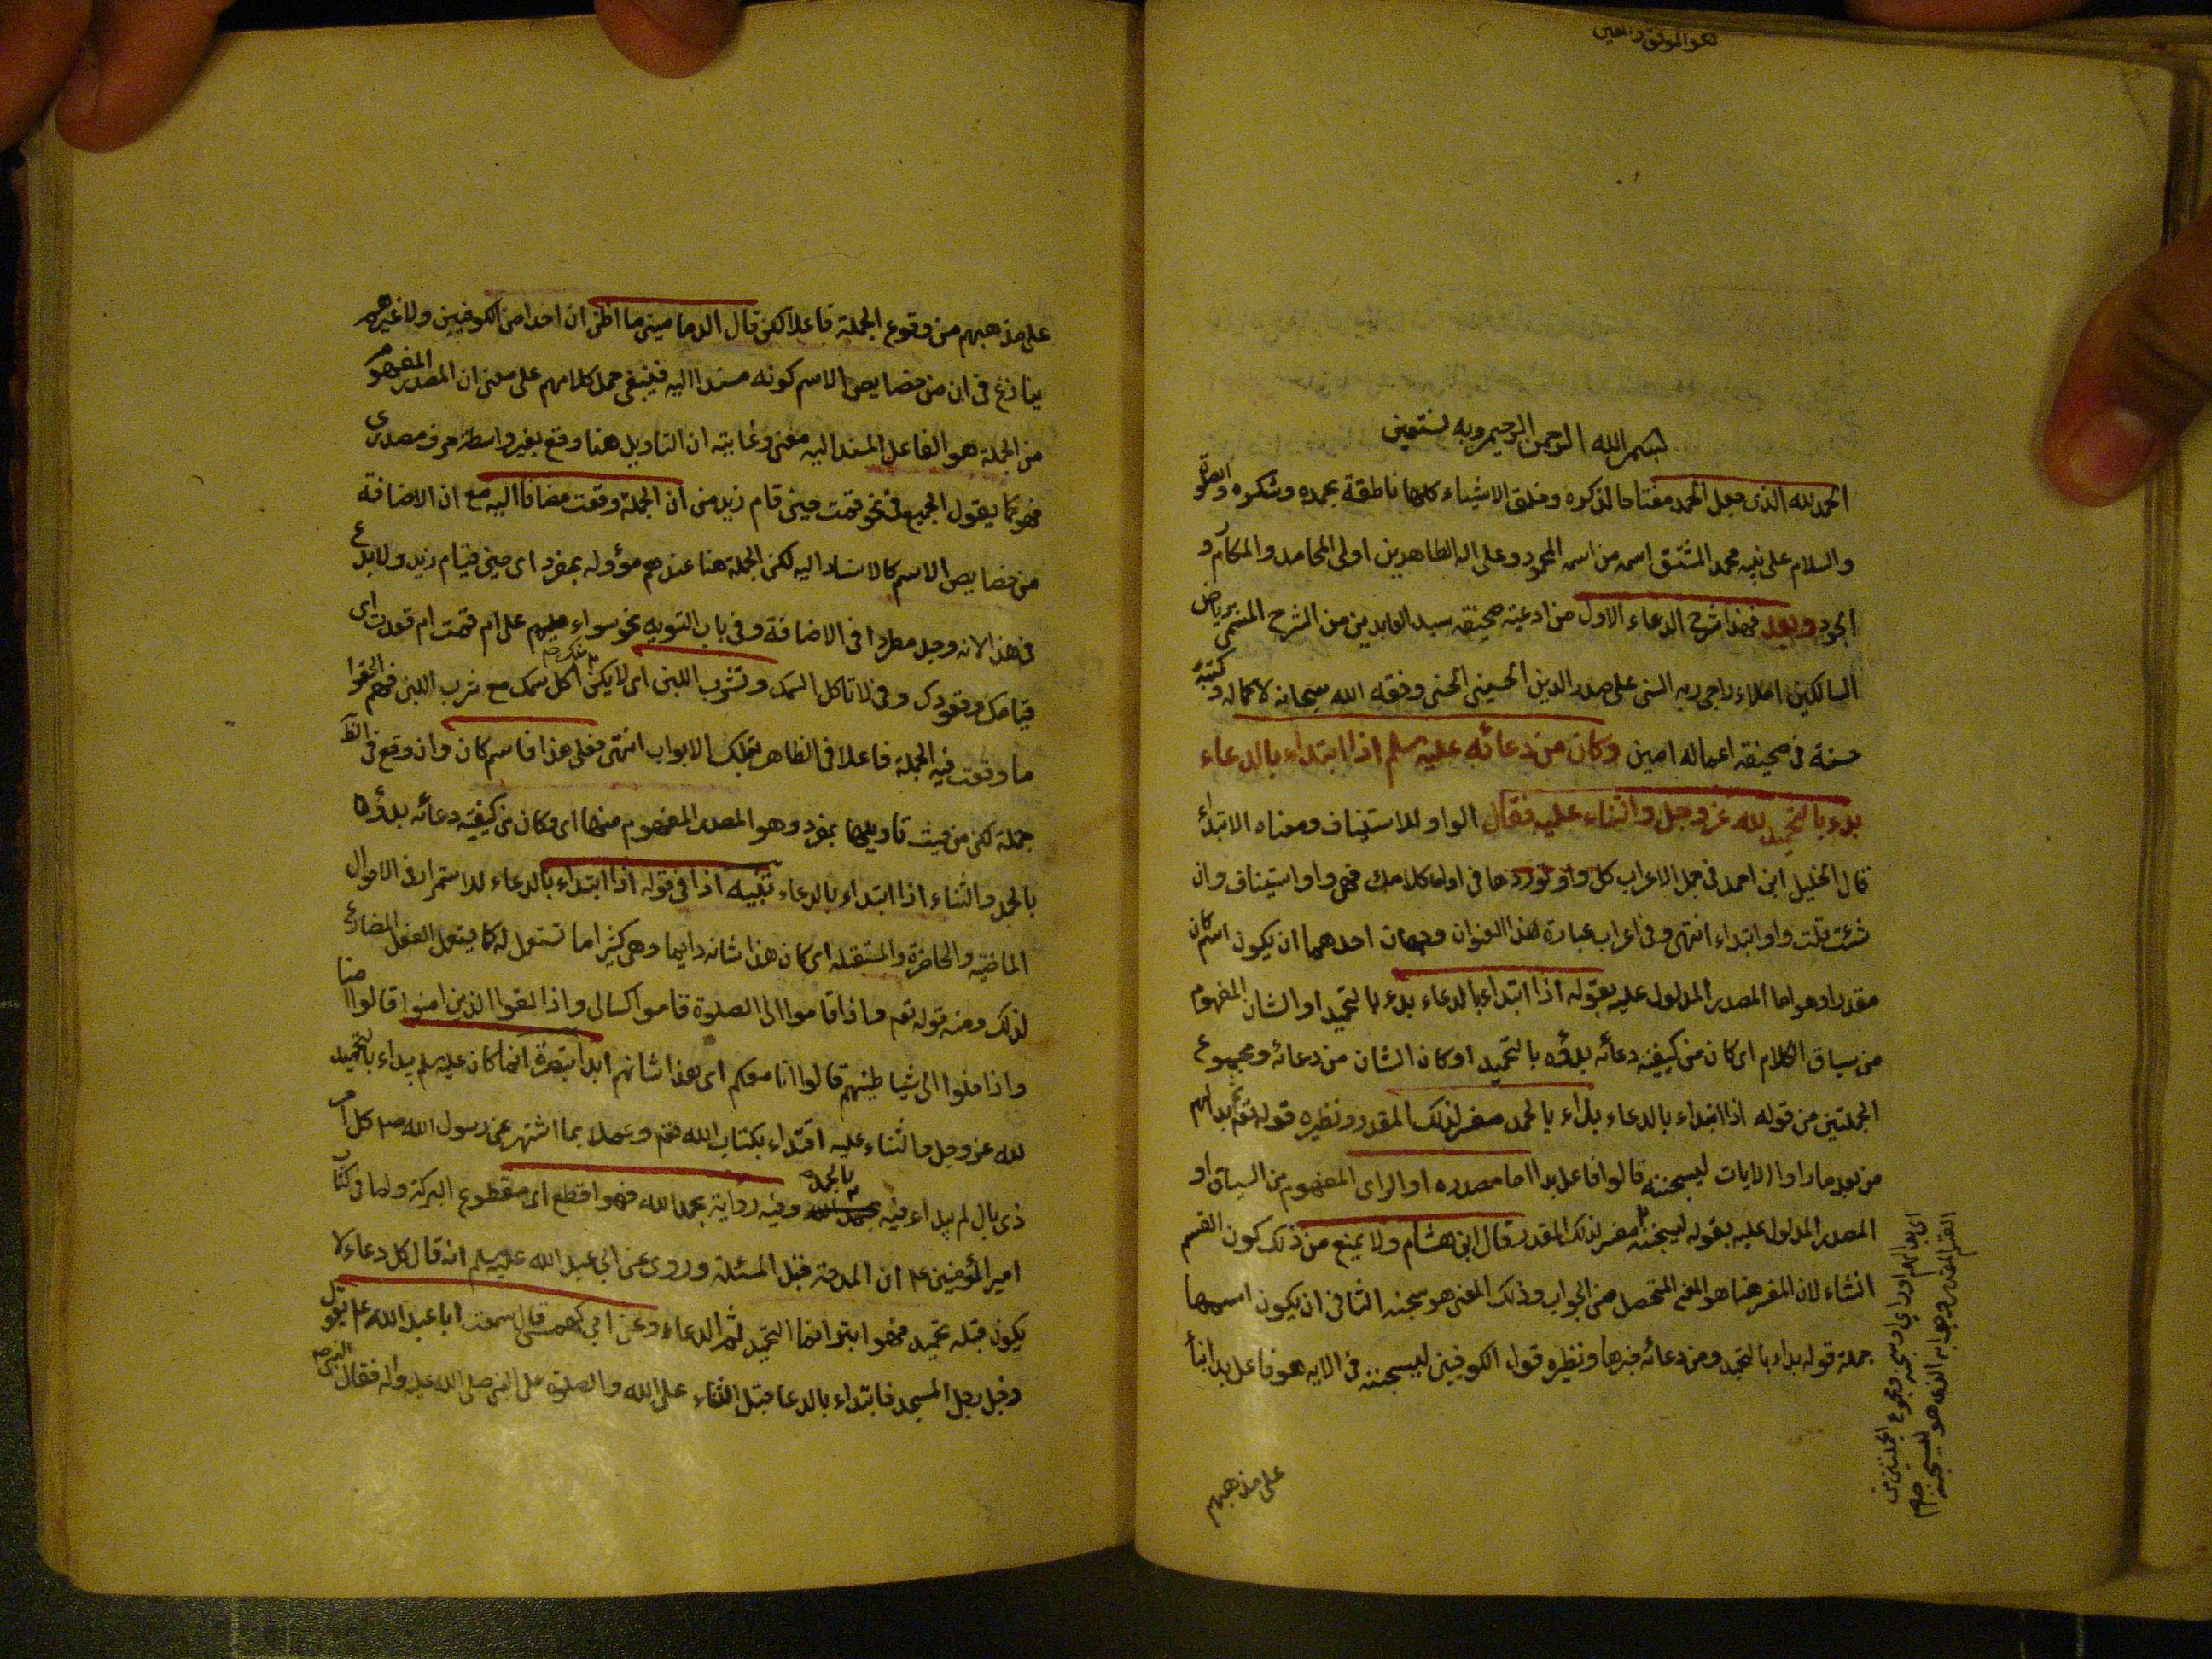 لكو الموفق والمعين
بسم الله الرحمن الرحيم وبه نستعين
الحمد لله الذى جعل الحمد مفتاحا لذكره وخلق الاشياء كلها ناطقة بحمده وشكره والصلوة
والسلام على نبيه محمد المشتق اسمه من اسمه المحمود وعلى اله الطاهرين اولى المحامد والمكارم و
الجود وبعد فهذا شرح الدعاء الاول من ادعية صحيفة سيد العابدين من الشرح المسمى برياض
السالكين املاء راجى ربه السنى على صدر الدين الحسينى الحسنى وفقه الله سبحانه لاكماله وكتبه
حسنة فى صحيفة اعماله امين وكان من دعائه عليه سلم اذا ابتداء بالدعاء
بدء بالتحميد لله عز وجل والثناء عليه فقال الواو للاستيناف ومعناه الابتداء
قال الخليل ابن احمد فى جمل الاعراب كل واو توردها فى اول كلامك فهى واو استيناف وان
شئت قلت واو ابتداء انتهى وفى اعراب عبارة هذا العنوان وجهان احدهما ان يكون اسم كان
مقدرا وهو اما المصدر المدلول عليه بقوله اذا ابتداء بالدعاء بدء بالتحميد او الشان المفهوم
من سياق الكلام اى كان من كيفية دعائه بدؤه بالتحميد او كان الشان من دعائه ومجموع
الجملتين من قوله اذا ابتداء بالدعاء بداء بالحمد مفسر لذلك المقدر ونظيره قوله تعم ثم بدا لهم
من بعد ما راوا الايات ليسجننه قالوا فاعل بدا اما مصدره او الراى المفهوم من السياق او
المصدر المدلول عليه بقوله ليسجننه مفسر لذلك المقدر قال ابن هشام ولا يمنع من ذلك كون القسم
انشاء لان المفسر هنا هو المعنى المتحصل من الجواب وذلك المعنى هو سجنه الثانى ان يكون اسمها
جملة قوله بداء بالتحميد ومن دعائه خبرها ونظيره قول الكوفيين ليسجننه فى الايه هو فاعل بدا بناء
اى بدا لهم او راى او سجنه ومجموع الجملتين من
القسم المقدر وجوابه الذى هو ليسجننه صح
على مذهبهم
على مذهبهم من وقوع الجملة فاعلا لكن قال الدمامينى ما اظن ان احدا من الكوفيين ولا غيرهم
ينازع فى ان من خصايص الاسم كونه مسندا اليه فينبغى حمل كلامهم على معنى ان المصدر المفهوم
من الجملة هو الفاعل المسند اليه معنى وغايته ان التاويل هنا وقع بغير واسطة حرف مصدرى
فهو كما يقول الجميع فى نحو قمت حين قام زيد من ان الجملة وقعت مضافا اليه مع ان الاضافة
من خصايص الاسم كالاسناد اليه لكن الجملة هنا عندهم مؤوله بمفرد اى حين قيام زيد ولا بدع
فى هذا الانه وجد مطردا فى الاضافة وفى باب التسويه نحو سواء عليهم على ام قمت ام قعدت اى
قيامك وقعودك وفى لا تاكل السمك وتشرب اللبن اى لا يكن منك اكل سمك مع شرب اللبن فهم الحقوا
ما وقعت فيه الجملة فاعلا فى الظاهر بتلك الابواب انتهى فعلى هذا فاسم كان وان وقع فى الظ
جملة لكن من حيث تاويلها بمفرد وهو المصدر المفهوم منها اى وكان من كيفية دعائه بدؤه
بالحمد والثناء اذا ابتداء بالدعاء تنبيه اذا فى قوله اذا ابتداء بالدعاء للاستمرار فى الاحوال
الماضيه والحاضرة والمستقبله اى كان هذا شانه دايما وهى كثيرا ما تستعمل له كا يستعمل الفعل المضارع
لذلك ومنه قوله تعم واذا قاموا الى الصلوة قاموا كسالى واذا لقوا الذين امنوا قالوا امنا
واذا خلوا الى شياطينهم قالوا انا معكم اى هذا شانهم ابدا تبصرة انما كان عليه سلم يبداء بالتحميد
لله عز وجل والثناء عليه اقتداء بكتاب الله تعم وعملا بما اشتهر عن رسول الله صم كل امر
ذى بال لم يبداء فيه بالحمد وفيه رواية بحمد الله فهو اقطع اى مقطوع البركة ولما فى كتاب
امير المؤمنين عم ان المدحة قبل المسئلة وروى عن ابى عبد الله عليه سلم انه قال كل دعاء لا
يكون قبله تحميد فهو ابتر انما التحميد ثم الدعاء وعن ابى كهمس قال سمعت ابا عبد الله عم يقول
دخل رجل المسجد فابتداء بالدعا قبل الثناء على الله والصلوة على النبى صلى الله عليه واله فقال النبى صم